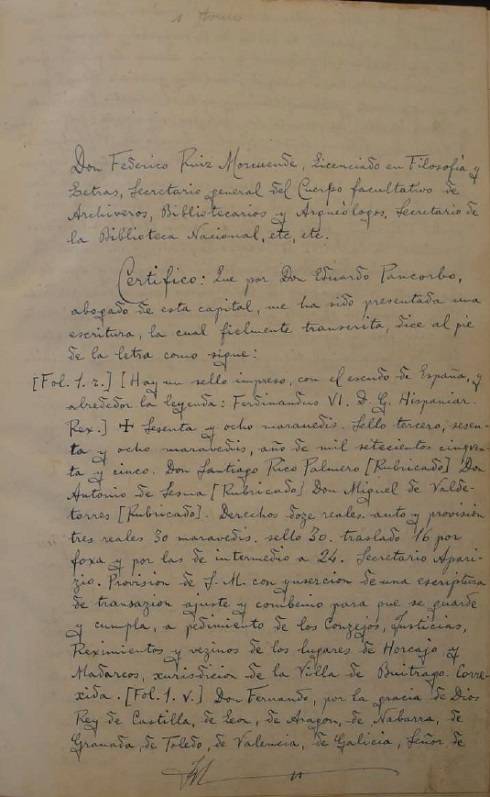 Don Federico Ruiz Morcuende, Licenciado en Filosofía y
Letras, Secretario general del Cuerpo facultativo de
Archiveros, Bibliotecarios y Arqueólogos, Secretario de
la Biblioteca Nacional, etc, etc.
Certifico: Que por Don Eduardo Pancorbo,
abogado de esta capital, me ha sido presentada una
escritura, la cual fielmente transcrita, dice al pie
de la letra como sigue:
[Fol. 1. r.] [Hay un sello impreso, con el escudo de España, y
alrededor la leyenda: Ferdinandus VI. D. G. Hispaniar.
Rex.] ✠ Sesenta y ocho maravedis. Sello tercero, sesen-
ta y ocho maravedis, año de mil setecientos cinquen-
ta y cinco. Don Santiago Rico Palmero [Rubricado] Don
Antonio de Sesma [Rubricado] Don Miguel de Valde-
torres [Rubricado]. Derechos doze reales. auto y provision
tres reales 30 maravedis. sello 30. traslado 16 por
foxa y por las de intermedio a 24. Secretario Apari-
zio. Provision de S. M. con ynsercion de una escriptura
de transazion ajuste y combenio para que se guarde
y cumpla, a pedimiento de los Conzejos, Justicias,
Reximientos y vezinos de los lugares de Horcajo y
Madarcos, xurisdicion de la Villa de Buitrago. Corre-
xida. [Fol. 1. v.] Don Fernando, por la gracia de Dios
Rey de Castilla, de Leon, de Aragon, de Nabarra, de
Granada, de Toledo, de Valencia, de Galicia, Señor de